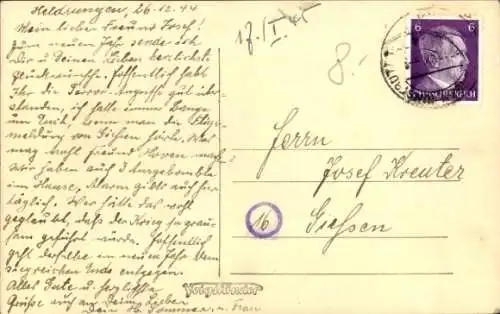 Heldrungen, 26.12.44
Mein lieber Freund Josef!
Zum neuen Jahr sende ich
Dir u. Deinen Lieben herzlichste
Glückwünsche. Hoffentlich habt
Ihr die Terror-Angriffe gut über-
standen, ich hatte immer Bange
um Euch, wenn man die
meldung von Giessen hörte. Was
mag wohl Freund machen
Wir haben auch 3 Ausgebombte
im Hause, Alarm gibts auch hier
täglich. Wer hätte das wohl
geglaubt, dass der Krieg so grau-
sam geführt würde. Hoffentlich
geht derselbe im neuen Jahr dem
siegreichen Ende entgegen.
Alles Gute u. herzlichste
Grüsse auch an Deine Lieben
Dein H. Sommer u. Frau
17./I.45
8.
6
6
Herrn
Josef Kreuter
Giessen
16
Voigtländer